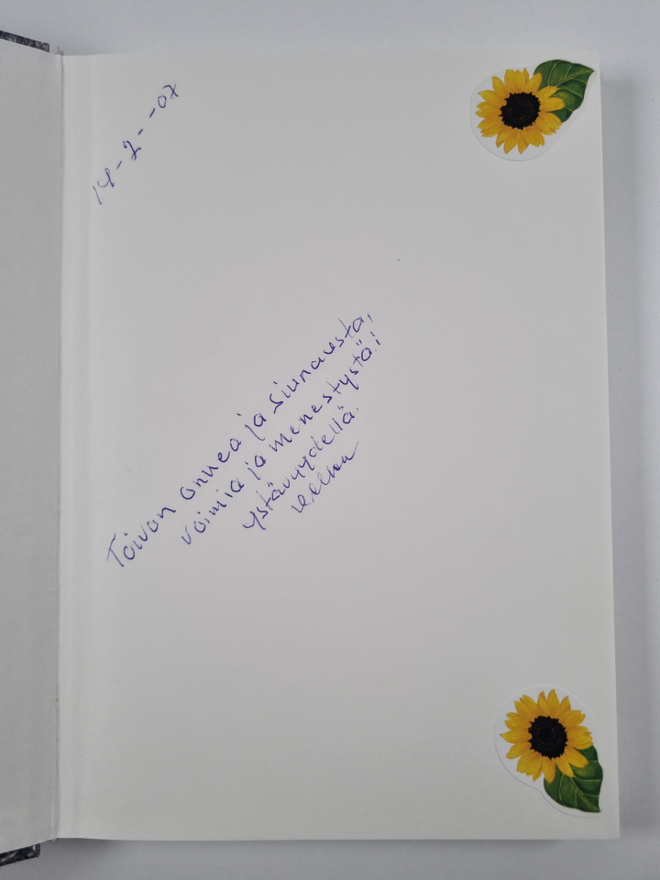 14-2--07
Toivon onnea ja siunausta,
voimia ja menestystä!
ystävyydellä.